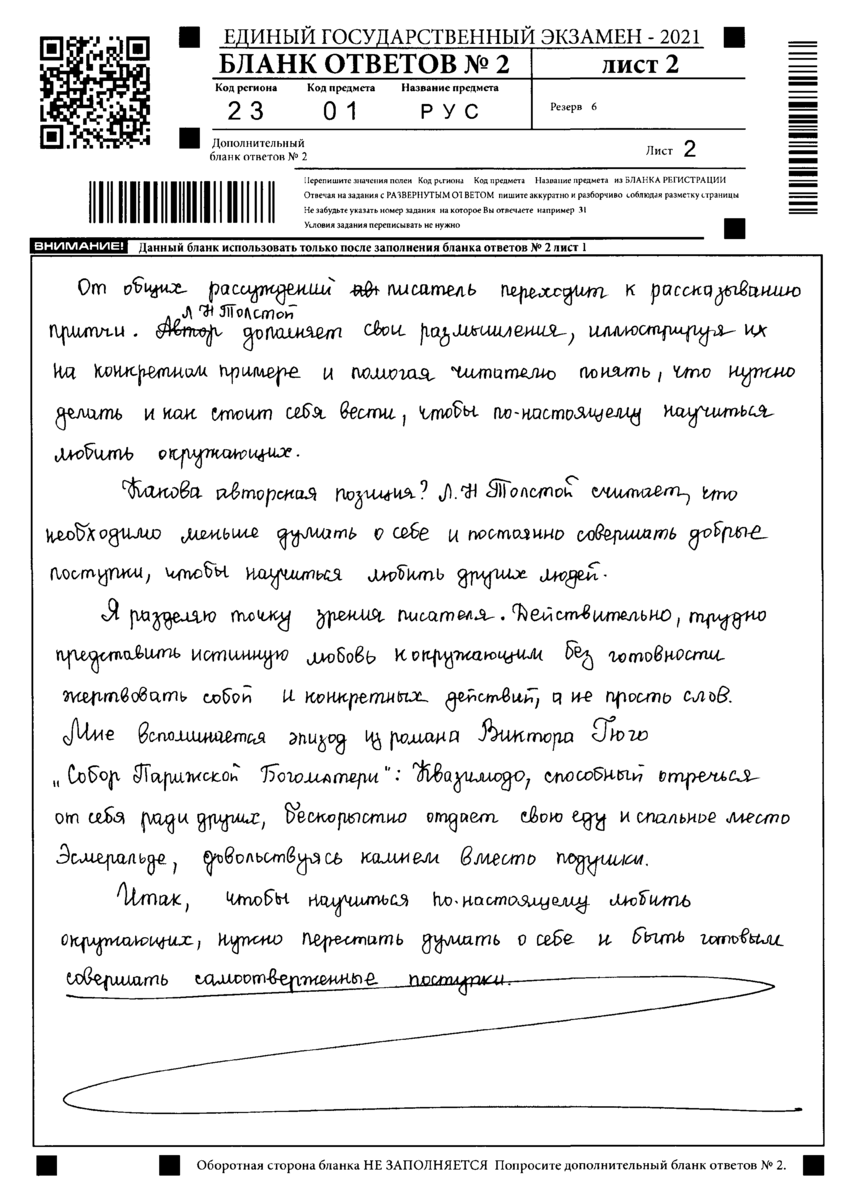 ЕДИНЫЙ ГОСУДАРСТВЕННЫЙ ЭКЗАМЕН - 2021
БЛАНК ОТВЕТОВ № 2
лист 2
Код региона Код предмета Название предмета
23 01 РУС
Резерв 6
Дополнительный
бланк ответов № 2
Лист 2
Перепишите значения полей Код региона Код предмета Название предмета из БЛАНКА РЕГИСТРАЦИИ
Отвечая на задания с РАЗВЕРНУТЫМ ОТВЕТОМ пишите аккуратно и разборчиво соблюдая разметку страницы
Не забудьте указать номер задания на которое Вы отвечаете например 31
Условия задания переписывать не нужно
ВНИМАНИЕ! Данный бланк использовать только после заполнения бланка ответов № 2 лист 1
От общих рассуждений авт писатель переходит к рассказыванию
Л Н Толстой
притчи. Автор дополняет свои размышления, иллюстрируя их
на конкретном примере и помогая читателю понять, что нужно
делать и как стоит себя вести, чтобы по-настоящему научиться
любить окружающих.
Какова авторская позиция? Л.Н Толстой считает, что
необходимо меньше думать о себе и постоянно совершать добрые
поступки, чтобы научиться любить других людей.
Я разделяю точку зрения писателя. Действительно, трудно
представить истинную любовь к окружающим без готовности
жертвовать собой и конкретных действий, а не прость слов.
Мне вспоминается эпизод из романа Виктора Гюго
„Собор Парижской Богоматери": Квазимодо, способный отречься
от себя ради других, бескорыстно отдает свою еду и спальное место
Эсмеральде, довольствуясь камнем вместо подушки.
Итак, чтобы научиться по-настоящему любить
окружающих, нужно перестать думать о себе и быть готовым
совершать самоотверженные поступки.
Оборотная сторона бланка НЕ ЗАПОЛНЯЕТСЯ Попросите дополнительный бланк ответов № 2.